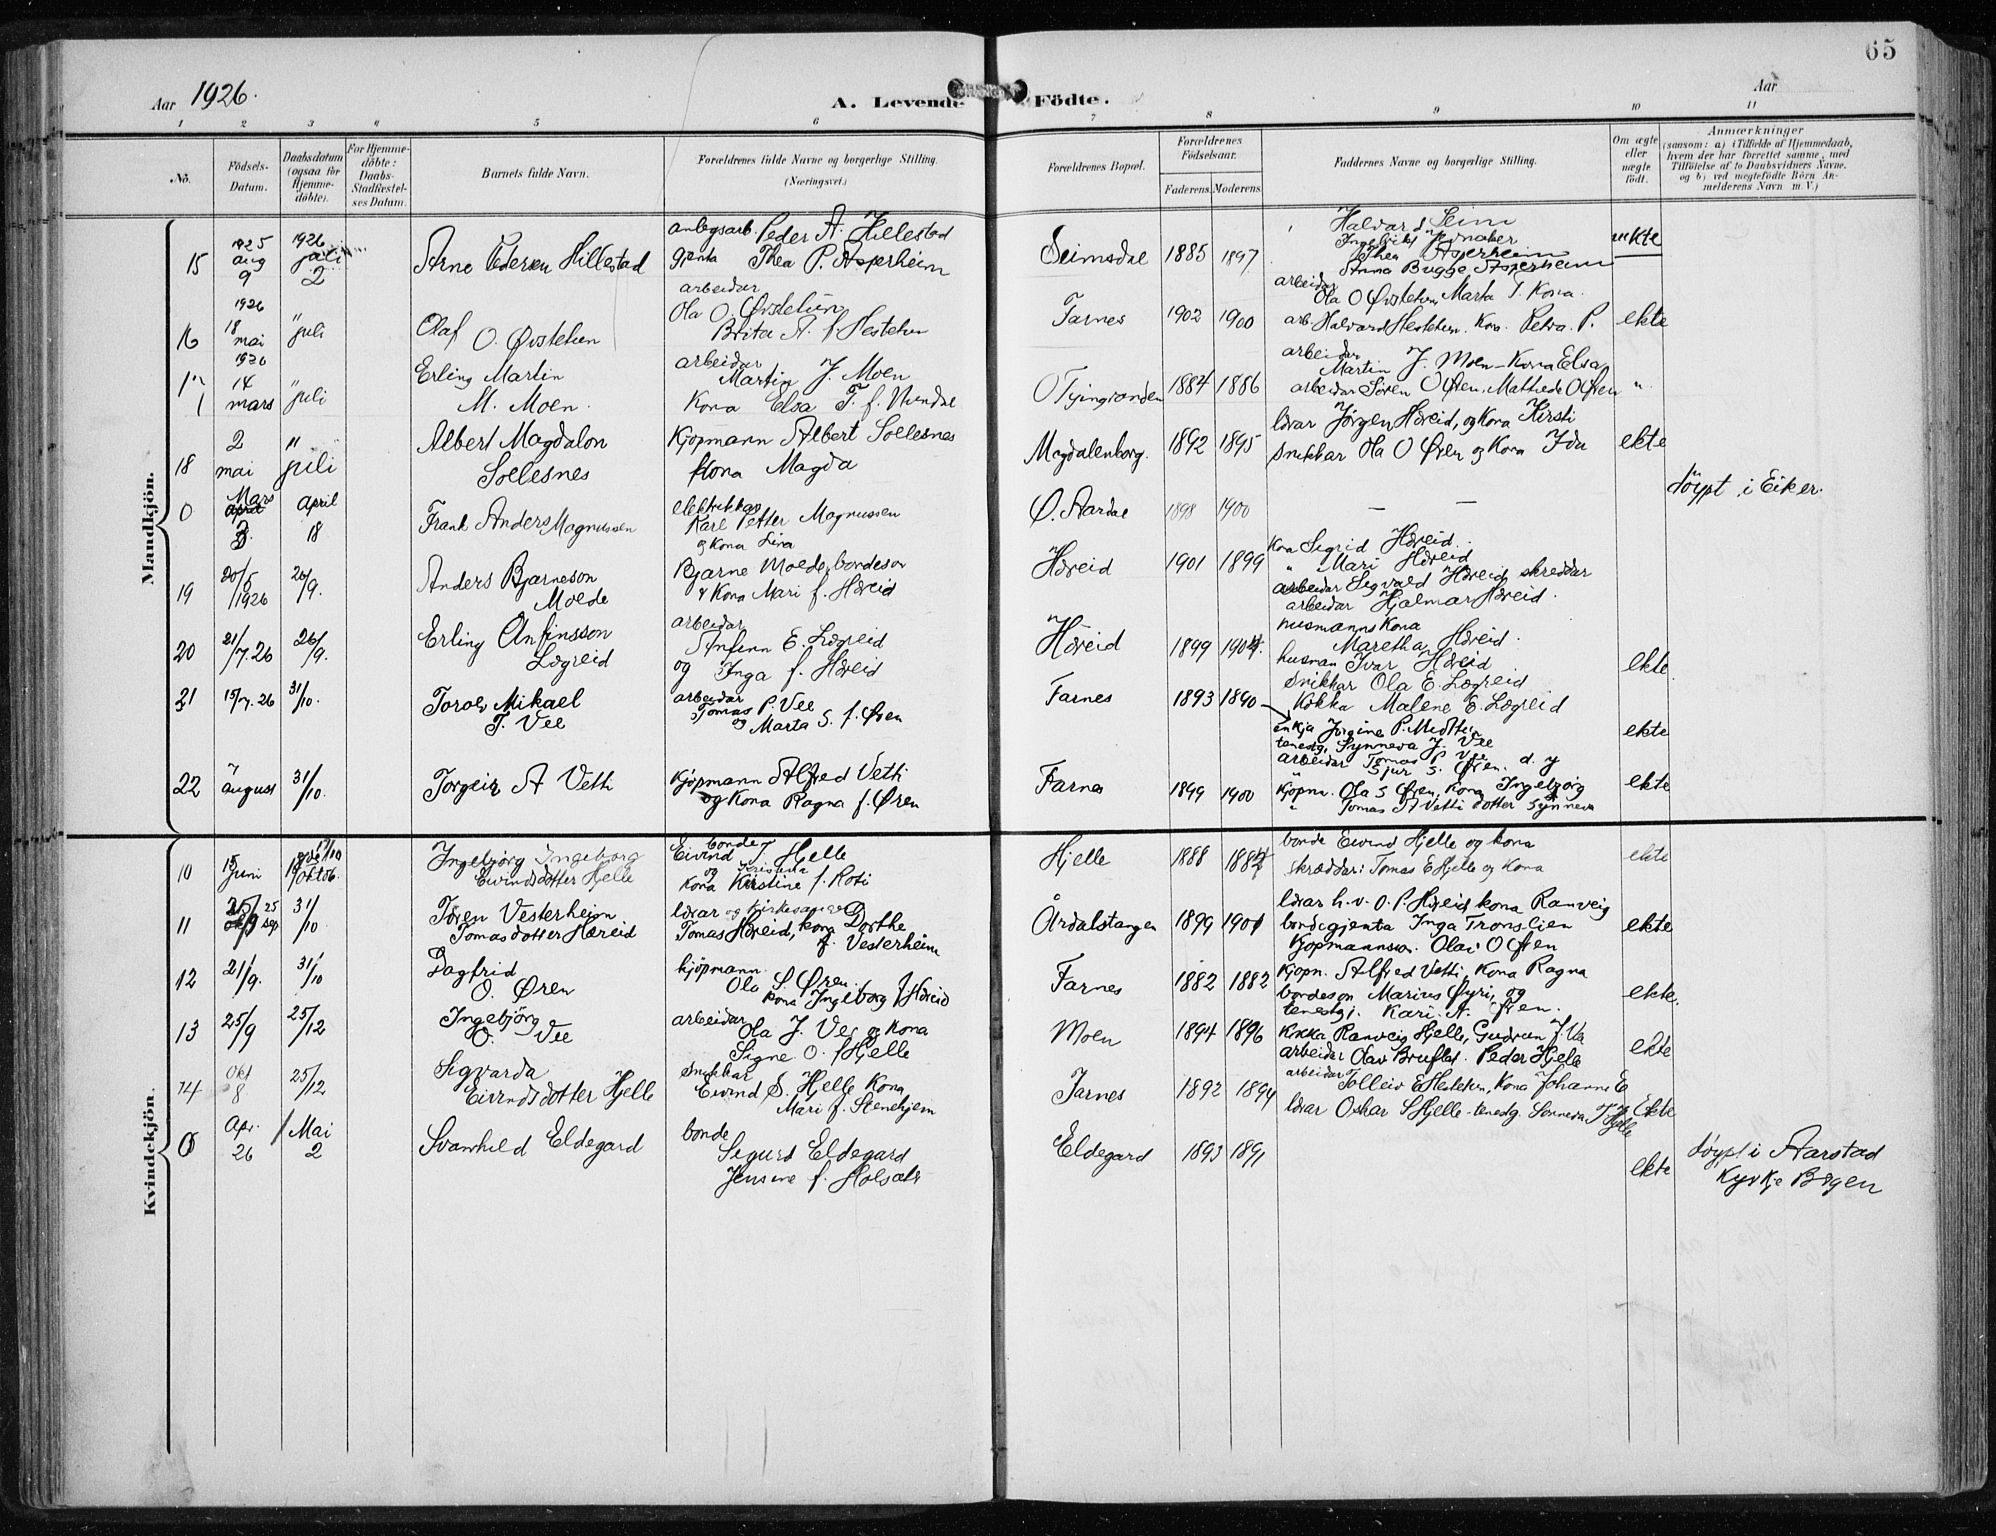 65
Aar 1926.
A. Levende Födte.
Aar
1 2 3 4 5 6 7 8 9 10 11
No.
Födsels-Datum.
Daabsdatum (ogsaa for Hjemme-döbte).
For Hjemme-döbte: Daabs-Stadfæstel-ses Datum.
Barnets fulde Navn.
Forældrenes fulde Navne og borgerlige Stilling. (Næringsvei.)
Forældrenes Bopæl.
Forældrenes Födselsaar.
Faderens. Moderens.
Faddernes Navne og borgerlige Stilling.
Om ægte eller uægte födt.
Anmærkninger
(saasom: a) i Tilfælde af Hjemmedaab, hvem der har forrettet samme, med Tilföielse af to Daabsvidners Navne, og b) ved uægtefödte Börn An-melderens Navn m. V.)
Mandkjön.
15 1925 aug 9 1926 juli 2 Arne Pedersen Hillestad
anlegsarb. Peder A. Hillestad
gjenta Thea P. Asperheim
Seimsdal 1885 1897
Halvard Seim
Thea Asperheim
Anna Bugge Asperheim
uekte
16 1926 18 mai " juli Olaf O. Øvstetun
arbeidar
Ola O. Øvstetun
Brita A. f Hestetun
Farnes 1902 1900
arbeidar Ola O Øvstetun, Marta T. Kona.
arb. Halvard Hestetun. Kona Petra P.
ekte
1926 14 mars " juli Erling Martin M. Moen.
arbeidar
Martin J. Moen
Kona Elsa T. f. Nundal
1884 1886
arbeidar
Martin J. Moen Kona Elsa
arbeidar Sören O Øren, Mathilde O Øren
"
18 2 mai " juli Albert Magdalon Sollesnes
Kjøpmann Albert Sollesnes
Kona Magda
Magdalenborg. 1892 1895
lærar Jørgen Hæreid, og Kona Kirsti
snikkar Ola O Øren og Kona Ida
ekte
0 Mars 3. April 18 Frank Anders Magnussen
Karl Petter Magnussen
og Kona Lina
Ø. Aardal 1898 1900
—
—
döypt i Eiker.
19 20/5 1926 26/9. Anders Bjarneson Molde
Bjarne Molde, bondeson
& Kona Mari f. Hæreid
Hæreid 1901 1899
Kona Sigrid Hæreid.
" Mari Hæreid
arbeidar Sigvald Hæreid, skreddar
arbeidar Hjalmar Hæreid.
20 21/7.26 26/9. Erling Anfinsson Lægreid
arbeidar
Anfinn E. Lægreid
og Inga f. Hæreid
Hæreid 1899 1904.
husmanns Kona
Maretha Hæreid.
husman Ivar Hæreid
Snikkar Ola E. Lægreid
Kokka Malene E. Lægreid
ekte
21 15/7.26 31/10. Torolv Mikael T. Vee
arbeidar
Tomas P. Vee
og Marta S. f. Øren
Farnes 1893 1890
enkja Jørgine P. Midttun
tenestg. Synneva J. Vee
arbeidar Tomas P Vee
" Sjur S. Øren. d. y
ekte
22 7 august 31/10. Torgeir A Vetti
Kjøpmann Alfred Vetti
og Kona Ragna f. Øren
Farnes 1899 1900
Kjøpm. Ola S Øren, Kona Ingebjørg
" Tomas A Vetti dotter Synneva
ekte
Kvindekjön.
10 15 juni 17/10 Ingebjørg Ingeborg Eivindsdotter Hjelle
bonde
Eivind J Hjelle
og Kona Kirstine f. Roti
Hjelle 1888 1884
bonde Eivind Hjelle og kona
skræddar: Tomas E Hjelle og Kona
ekte
11 25 31/10 Tøren Vesterheim Tomasdotter Hæreid
lærar og kirkesanger
Tomas Hæreid, kona Dorthe
f. Vesterheim
Årdalstangen 1899 1901
lærar h. v. O. P. Hæreid kona Ranveig
bondegjenta Inga Tronslien
Kjøpmannson. Olav O Øren
ekte
12 21/9. 31/10 Dagfrid O. Øren
kjøpmann
Ola S. Øren.
Kona Ingeborg f. Hæreid
Farnes 1882 1882
Kjøpm. Alfred Vetti, Kona Ragna
bondeson Marius Øyri, og
tenestgj. Kari. A. Øren.
ekte.
13 25/9 25/12 Ingebjörg O. Vee
arbeidar
Ola J. Vee og Kona
Signe O. f Hjelle
Moen 1894 1896
Kokka Ranveig Hjelle, Gudrun J. Va
arbeidar Olav Bruflot. Peder Hjelle
ekte
14 Okt 8 25/12 Sigvarda Eivindsdotter Hjelle
Snikkar
Eivind S. Hjelle Kona
Mari f. Stenehjem
Farnes 1892 1894
arbeidar Tolleiv E Hestetun, Kona Johanne E
lærar Oskar S Hjelle - tenestg. Sønneva T Hjelle
Ekte
0 Apr. 26 Mai 2 Svanhild Eldegard
bonde
Sigurd Eldegard
Jensine f. Holsæte
Eldegard 1893 1891
ekte
döypt i Aarstad
Kyrkje Bergen